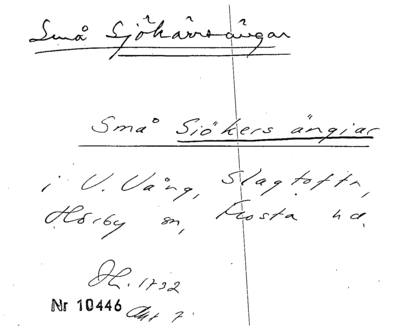 Små Sjökärrsängar
Små Siökers ängiar
i V. Vång, Slagtoftn,
Hörby sn, Frosta hd.
Dh. 1732
Nr 10446 Akt 7.